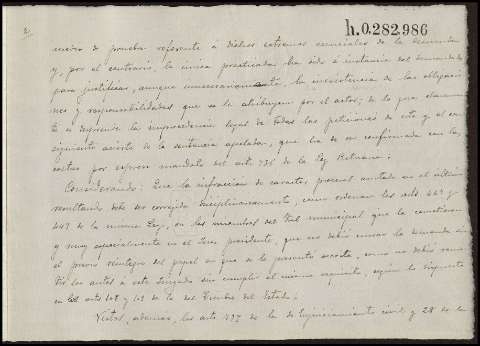 2
h.0.282.986
medio de prueba referente á dichos extremos esenciales de la demanda
y, por el contrario, la única practicada ha sido á instancia del demandado
para justificar, aunque innecesariamente, la inexistencia de las obligacio
nes y responsabilidades que se le atribuyen por el actor; de lo que claramen
te se desprende la improcedencia legal de todas las peticiones de este y el con
siguiente acierto de la sentencia apelada, que ha de ser confirmada con las
costas por expreso mandato del art. 736 de la Ley Rituaria.
Considerando: Que la infracción de caracter procesal anotada en el último
resultando debe ser corregida disciplinariamente, como ordenan los arts 443 y
447 de la misma Ley, en los miembros del Tribunal municipal que la cometieron
y muy especialmente en el Juez presidente, que no debió cursar la demanda sin
el previo reintegro del papel en que se la presentó escrita, como no debió remi
tir los autos á este Juzgado sin cumplir el mismo requisito, según lo dispuesto
en los arts 108 y 109 de la del Timbre del Estado;
Vistos, además, los arts 737 de la de Enjuiciamiento civil y 28 de la